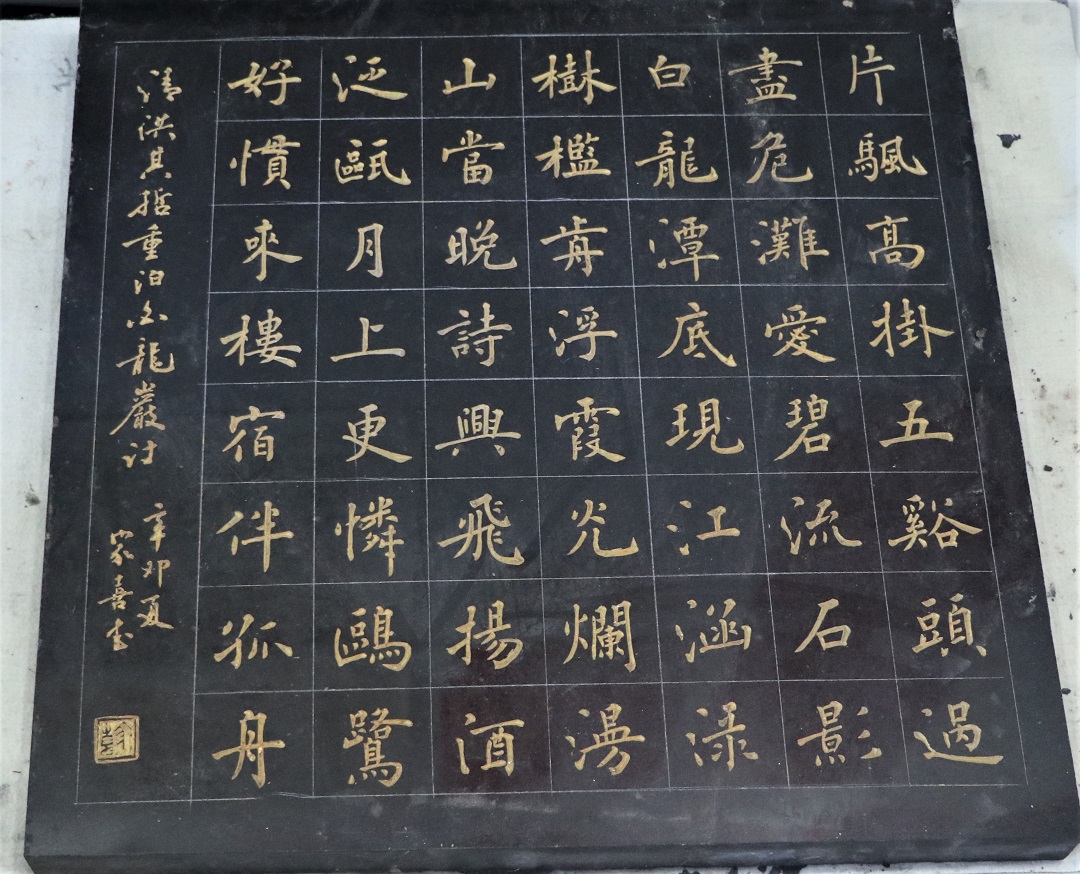 片颿高掛五谿頭過
盡危灘愛碧流石影
白龍潭底現江涵淥
樹檻前浮霞光爛漫
山當晚詩興飛揚酒
泛甌月上更憐鷗鷺
好慣來樓宿伴孤舟
清洪其哲重泊白龍巖詩
辛卯夏
家喜書